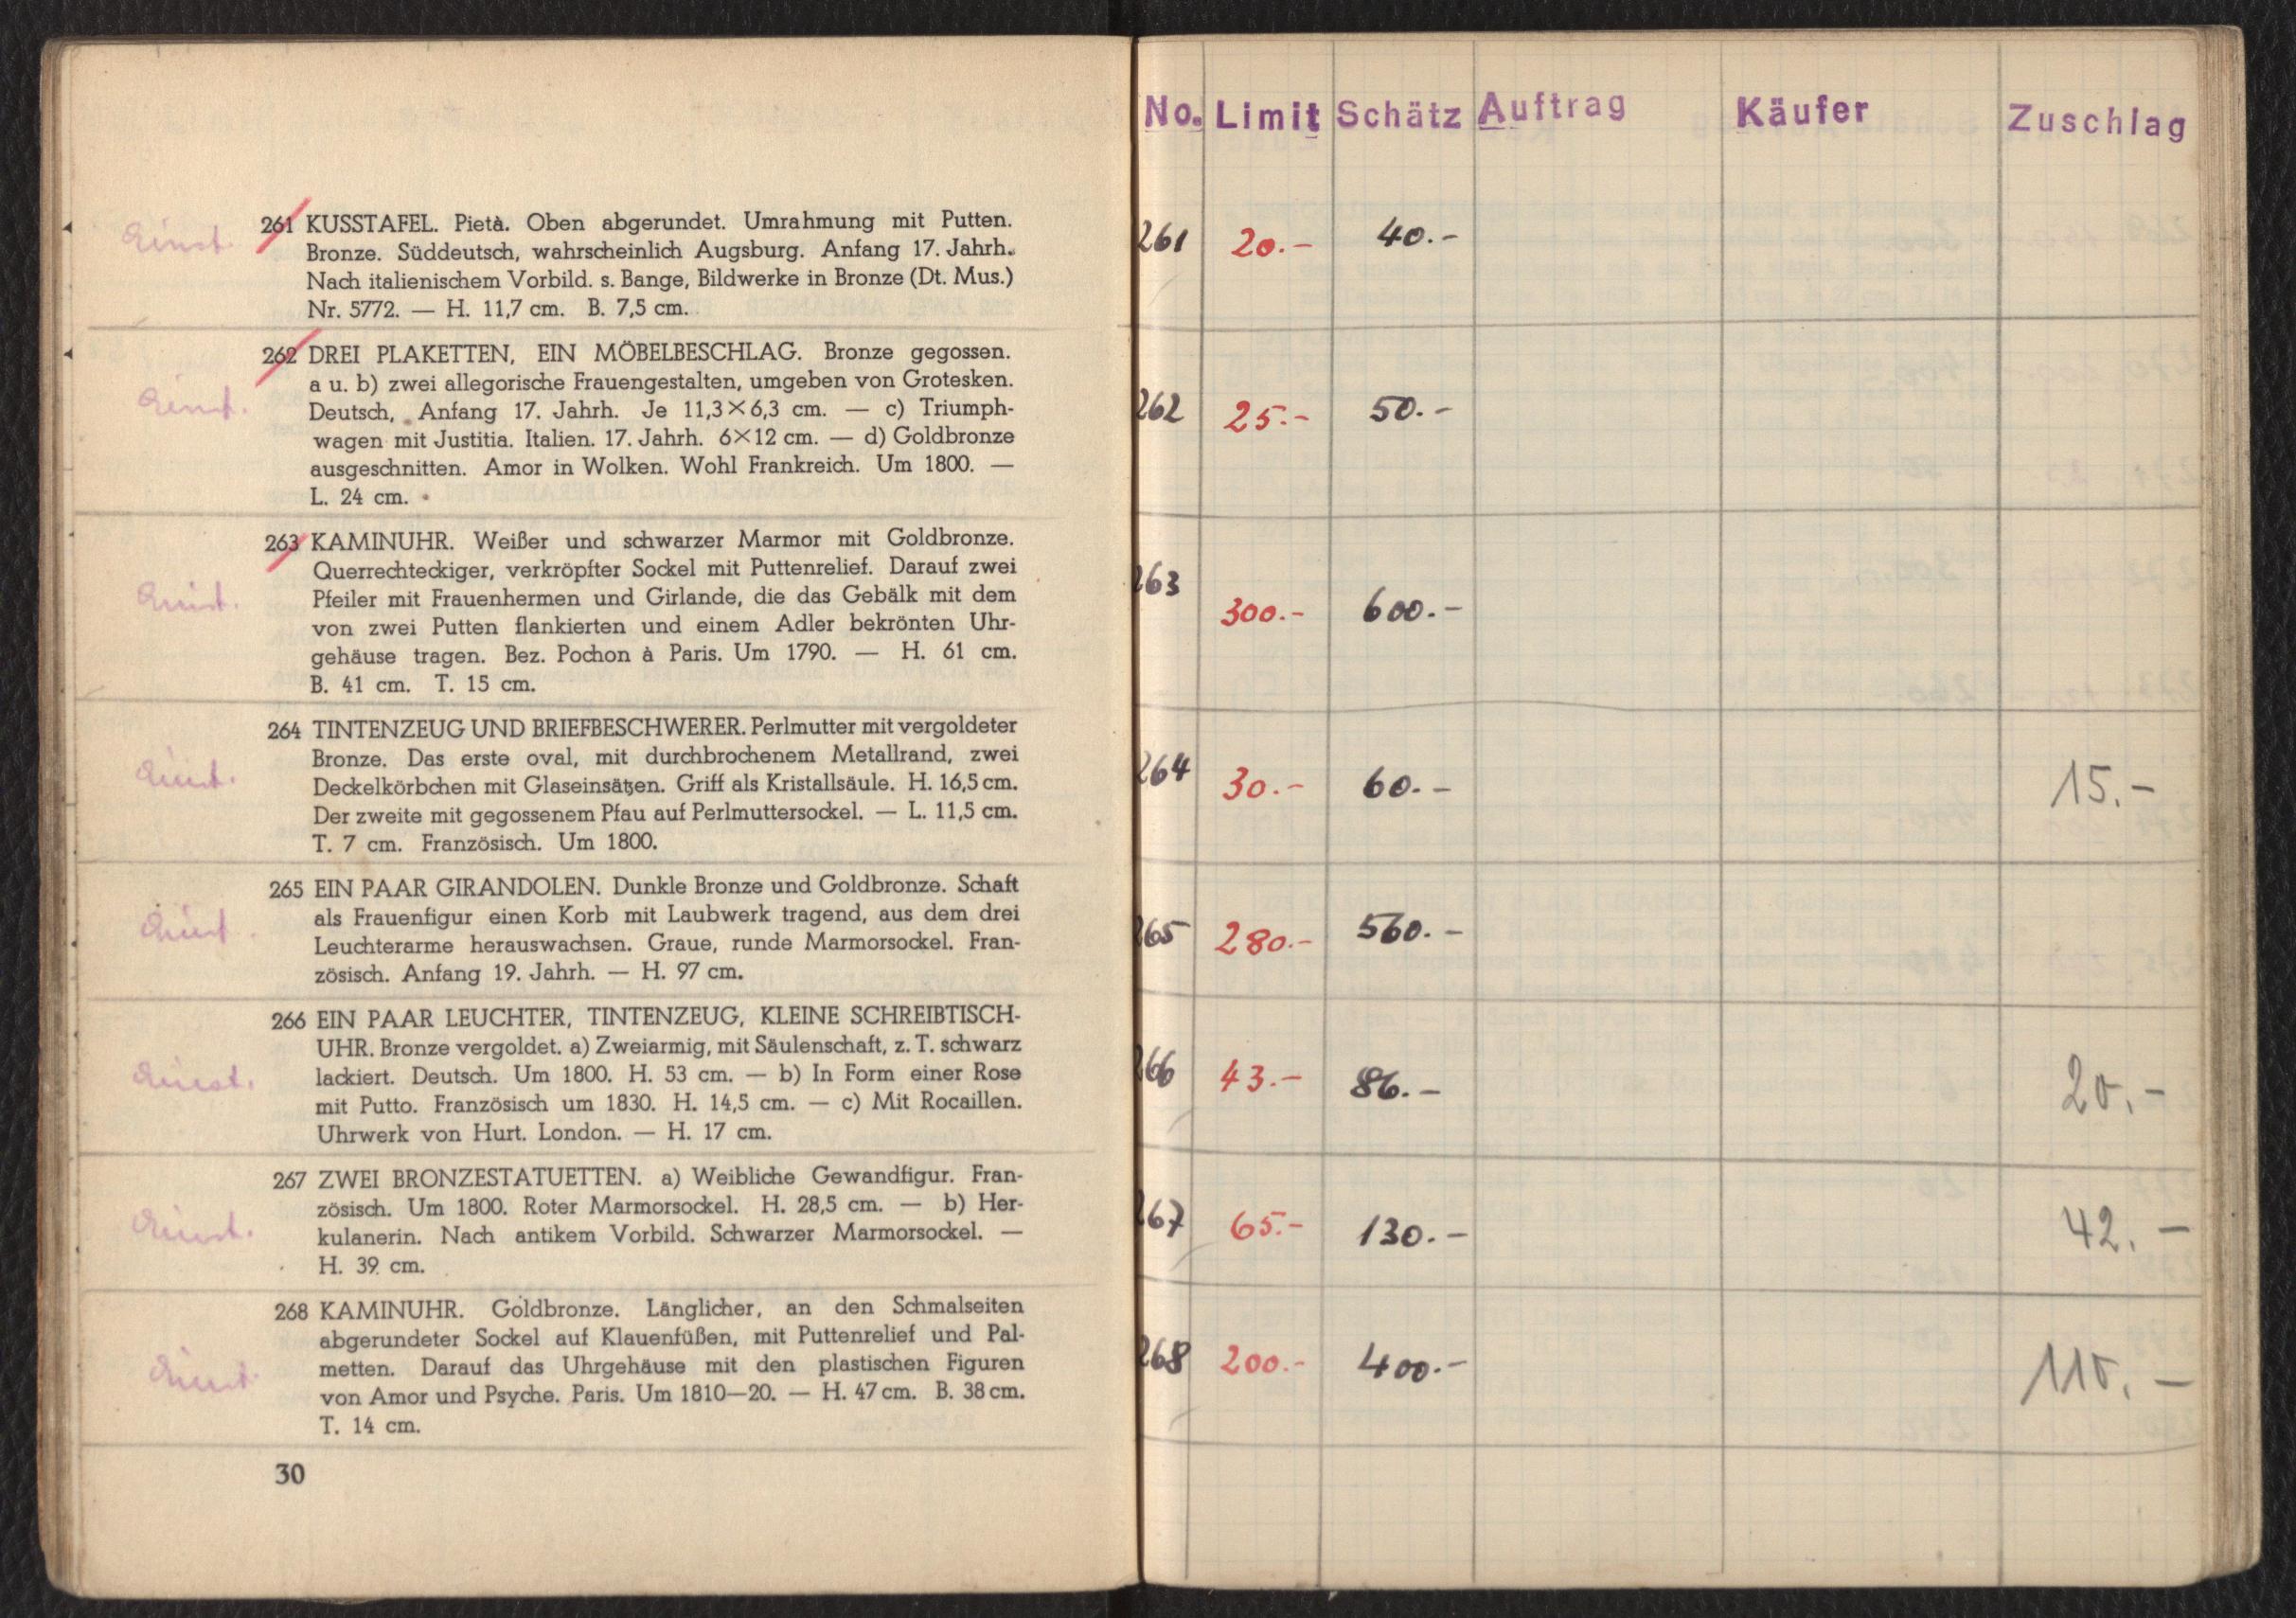 261 KUSSTAFEL. Pietà. Oben abgerundet. Umrahmung mit Putten.
Bronze. Süddeutsch, wahrscheinlich Augsburg. Anfang 17. Jahrh.
Nach italienischem Vorbild. s. Bange, Bildwerke in Bronze (Dt. Mus.)
Nr. 5772. — H. 11,7 cm. B. 7,5 cm.
262 DREI PLAKETTEN, EIN MÖBELBESCHLAG. Bronze gegossen.
a u. b) zwei allegorische Frauengestalten, umgeben von Grotesken.
Deutsch, Anfang 17. Jahrh. Je 11,3×6,3 cm. — c) Triumph-
wagen mit Justitia. Italien. 17. Jahrh. 6×12 cm. — d) Goldbronze
ausgeschnitten. Amor in Wolken. Wohl Frankreich. Um 1800. —
L. 24 cm.
263 KAMINUHR. Weißer und schwarzer Marmor mit Goldbronze.
Querrechteckiger, verkröpfter Sockel mit Puttenrelief. Darauf zwei
Pfeiler mit Frauenhermen und Girlande, die das Gebälk mit dem
von zwei Putten flankierten und einem Adler bekrönten Uhr-
gehäuse tragen. Bez. Pochon à Paris. Um 1790. — H. 61 cm.
B. 41 cm. T. 15 cm.
264 TINTENZEUG UND BRIEFBESCHWERER. Perlmutter mit vergoldeter
Bronze. Das erste oval, mit durchbrochenem Metallrand, zwei
Deckelkörbchen mit Glaseinsätzen. Griff als Kristallsäule. H. 16,5 cm.
Der zweite mit gegossenem Pfau auf Perlmuttersockel. — L. 11,5 cm.
T. 7 cm. Französisch. Um 1800.
265 EIN PAAR GIRANDOLEN. Dunkle Bronze und Goldbronze. Schaft
als Frauenfigur einen Korb mit Laubwerk tragend, aus dem drei
Leuchterarme herauswachsen. Graue, runde Marmorsockel. Fran-
zösisch. Anfang 19. Jahrh. — H. 97 cm.
266 EIN PAAR LEUCHTER, TINTENZEUG, KLEINE SCHREIBTISCH-
UHR. Bronze vergoldet. a) Zweiarmig, mit Säulenschaft, z. T. schwarz
lackiert. Deutsch. Um 1800. H. 53 cm. — b) In Form einer Rose
mit Putto. Französisch um 1830. H. 14,5 cm. — c) Mit Rocaillen.
Uhrwerk von Hurt. London. — H. 17 cm.
267 ZWEI BRONZESTATUETTEN. a) Weibliche Gewandfigur. Fran-
zösisch. Um 1800. Roter Marmorsockel. H. 28,5 cm. — b) Her-
kulanerin. Nach antikem Vorbild. Schwarzer Marmorsockel. —
H. 39 cm.
268 KAMINUHR. Goldbronze. Länglicher, an den Schmalseiten
abgerundeter Sockel auf Klauenfüßen, mit Puttenrelief und Pal-
metten. Darauf das Uhrgehäuse mit den plastischen Figuren
von Amor und Psyche. Paris. Um 1810—20. — H. 47 cm. B. 38 cm.
T. 14 cm.
30
No. Limit Schätz Auftrag Käufer Zuschlag
261 20.- 40.-
262 25.- 50.-
263 300.- 600.-
264 30.- 60.- 15.-
265 280.- 560.-
266 43.- 86.- 20.-
267 65.- 130.- 42.-
268 200.- 400.- 110.-